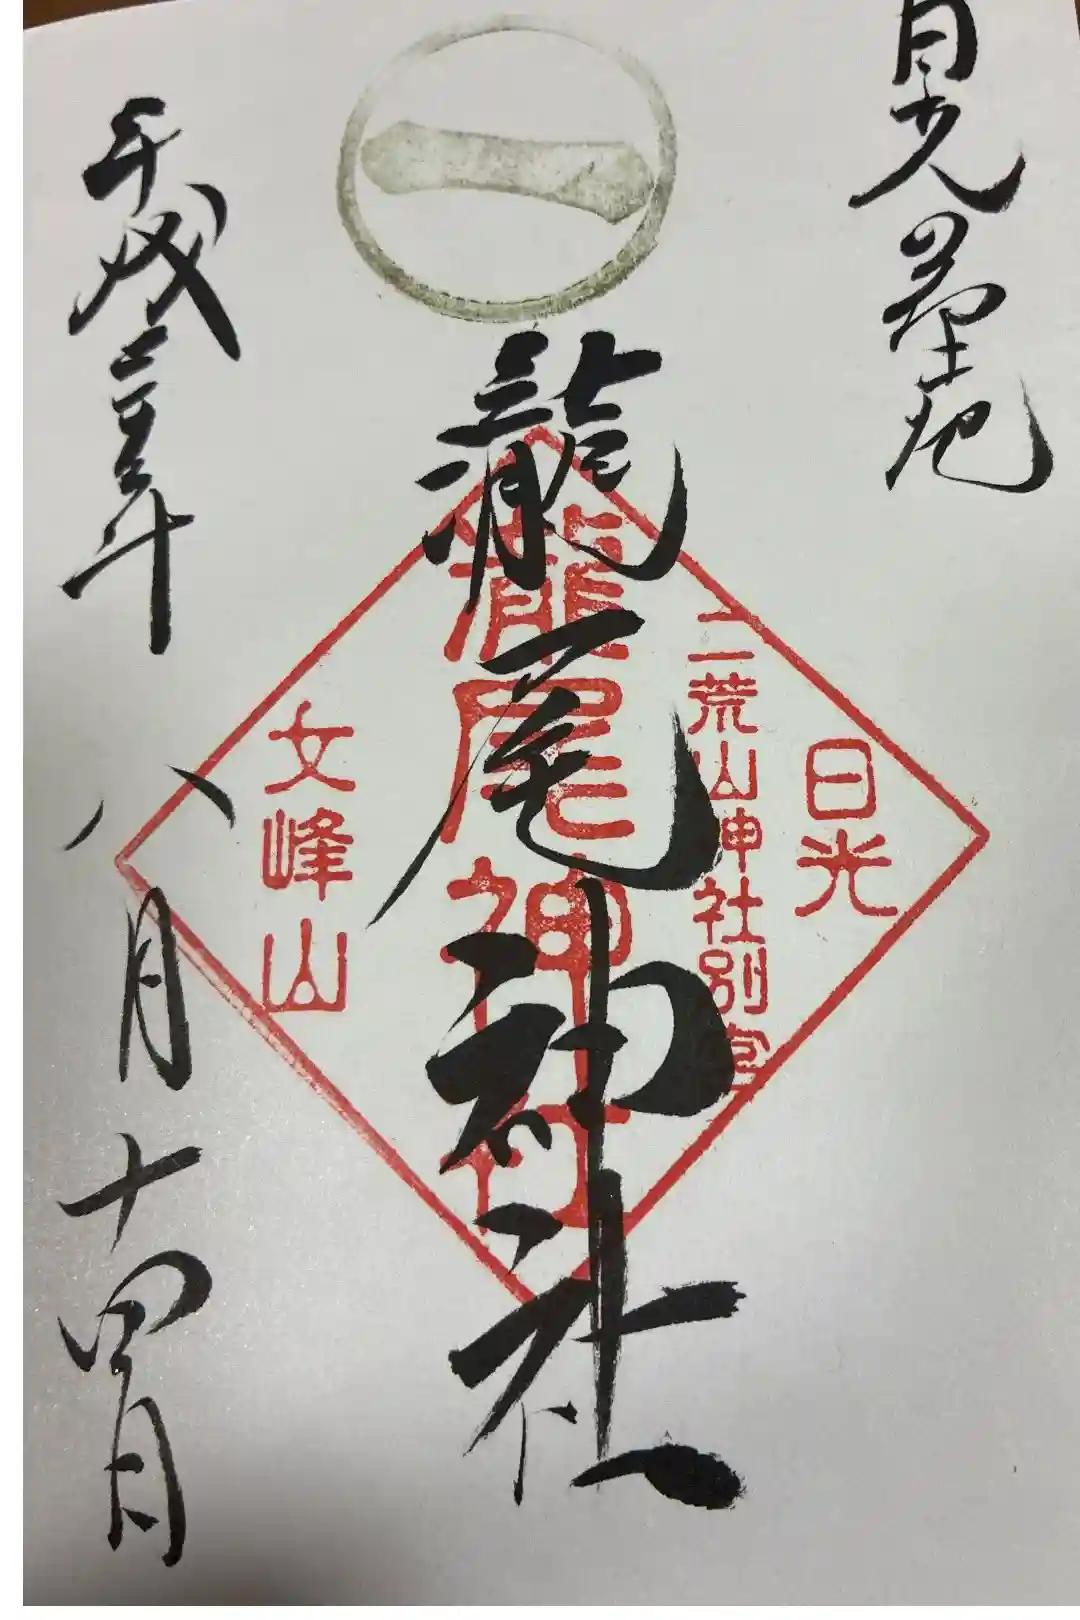 日光聖地
一
瀧尾神社
日光
二荒山神社別宮
瀧尾神社
女峰山
平成三十年八月十四日